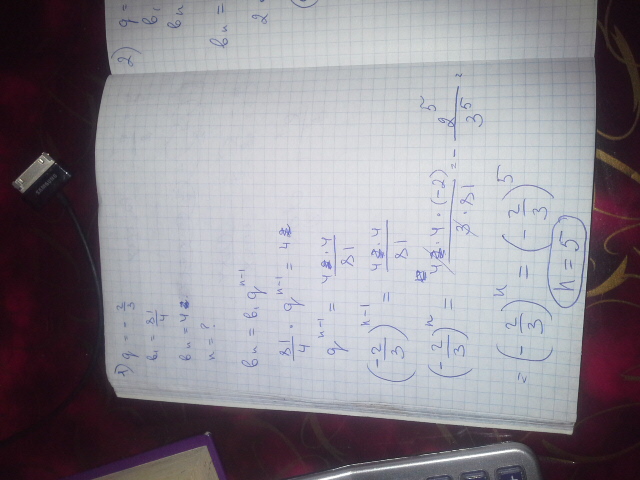 1) q = -2/3
b₁ = 81/4
bₙ = 4
n = ?
bₙ = b₁ q^(n-1)
81/4 · q^(n-1) = 4
q^(n-1) = 4·4/81
(-2/3)^(n-1) = 4·4/81
(-2/3)^n = 4·4·(-2)/3·81 = -2^5/3^5 =
= (-2/3)^n = (-2/3)^5
n = 5
2) q =
b₁
bₙ
bₙ =
2